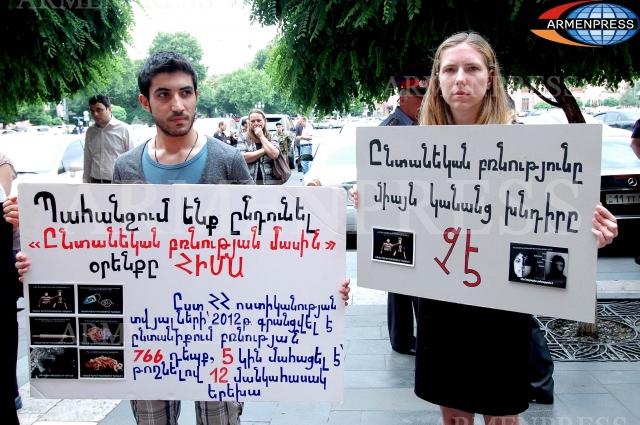 ARMENPRESS
Պահանջում ենք ընդունել
«Ընտանեկան բռնության մասին»
օրենքը ՀԻՄԱ
Ըստ ՀՀ ոստիկանության
տվյալների՝ 2012թ. գրանցվել է
ընտանիքում բռնության
766 դեպք, 5 կին մահացել է՝
թողնելով 12 մանկահասակ
երեխա
Ընտանեկան բռնությունը
միայն կանանց խնդիրը
ՉԷ